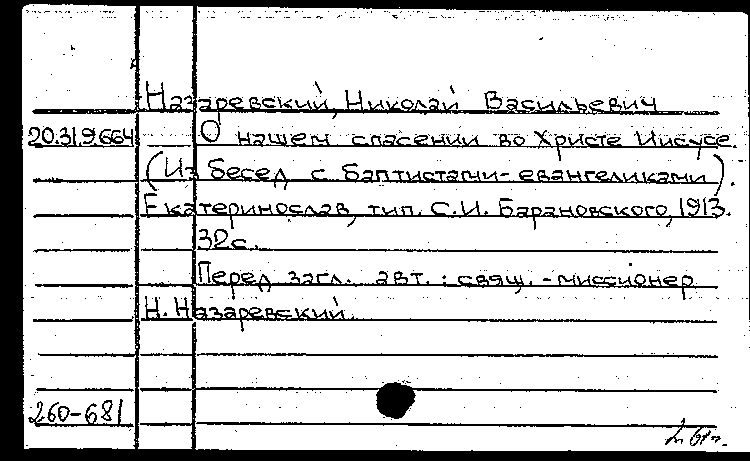 Назаревский, Николай Васильевич
20.31.9.664 О нашем спасении во Христе Иисусе.
(Из бесед с баптистами-евангеликами).
Екатеринослав, тип. С.И. Барановского, 1913.
32с.
Перед загл. авт.: свящ.-миссионер
Н. Назаревский.
260-681